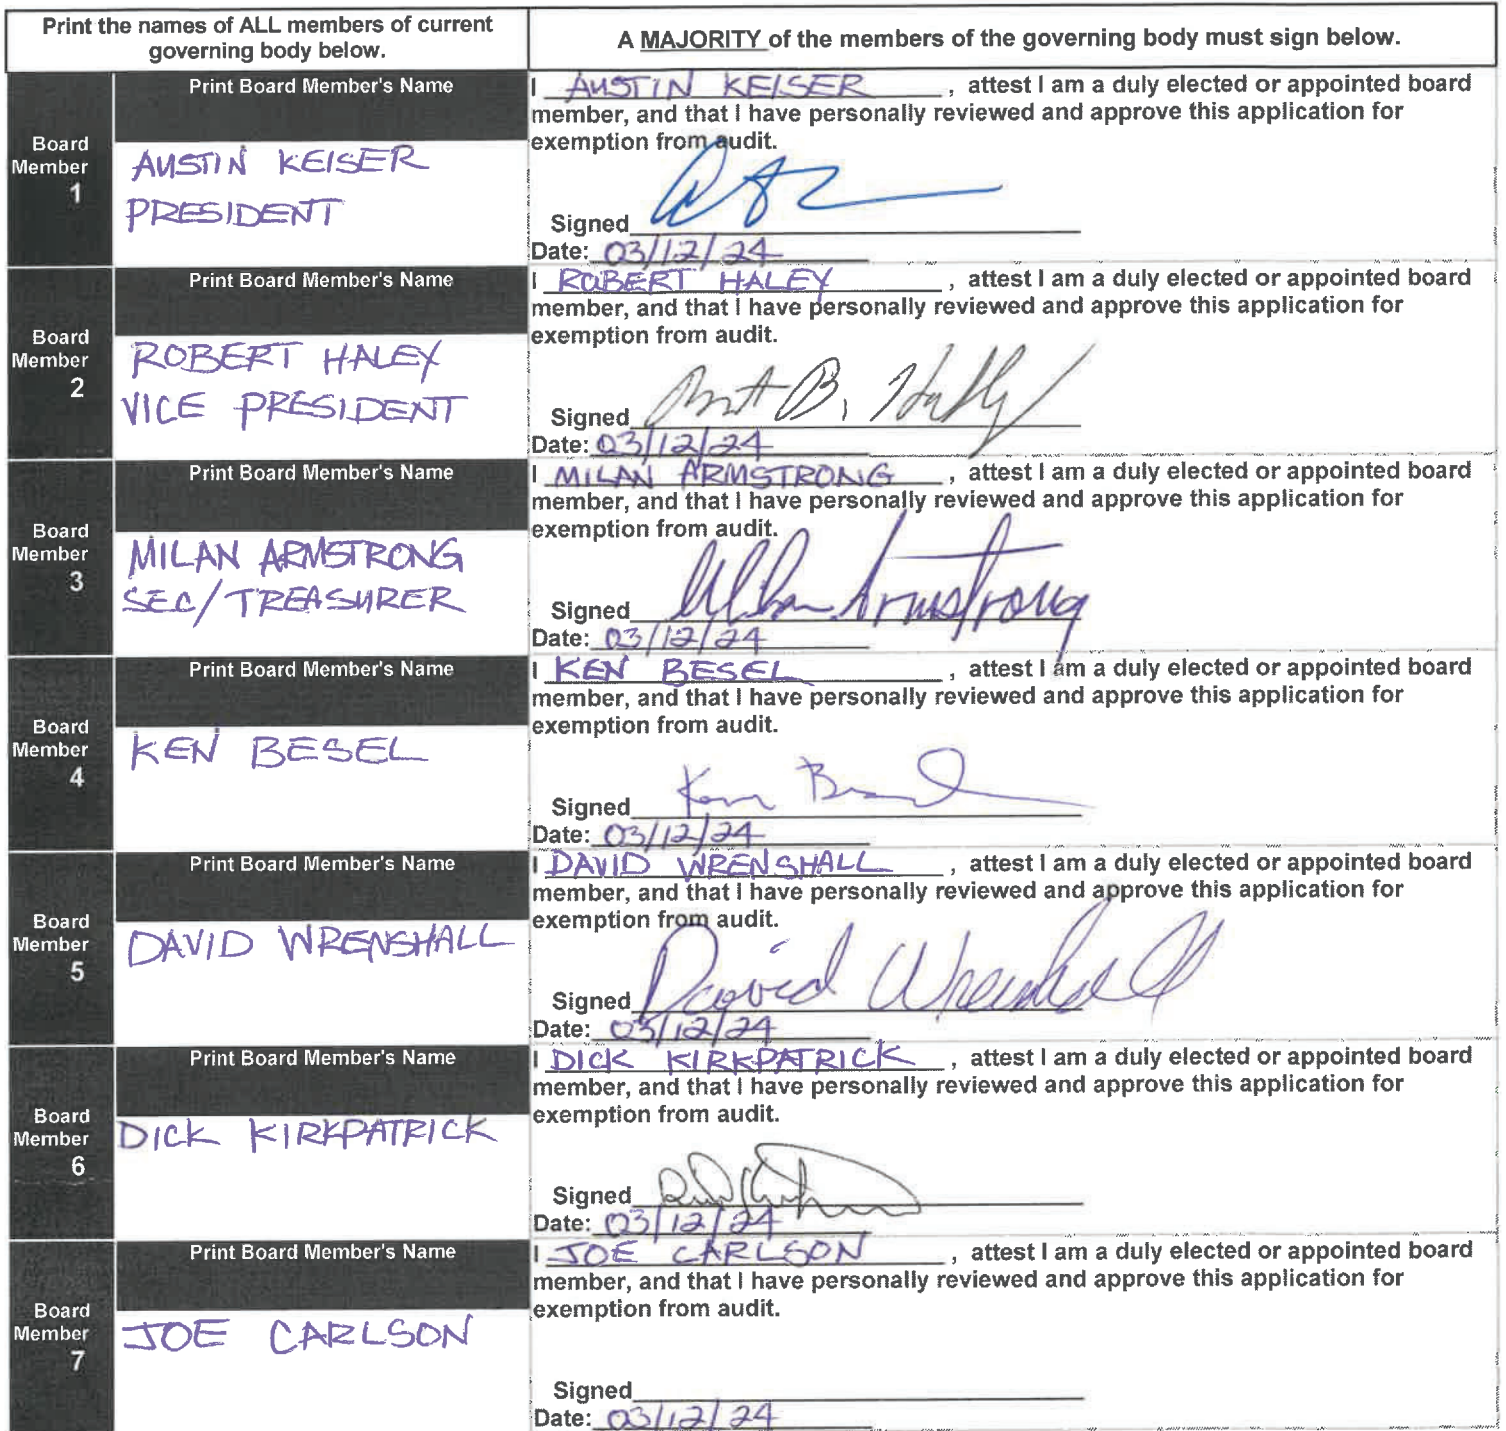 Print the names of ALL members of current
governing body below.
A MAJORITY of the members of the governing body must sign below.
Board
Member
1
Print Board Member's Name
AUSTIN KEISER
PRESIDENT
I AUSTIN KEISER , attest I am a duly elected or appointed board
member, and that I have personally reviewed and approve this application for
exemption from audit.
Signed
Date: 03/12/24
Board
Member
2
Print Board Member's Name
ROBERT HALEY
VICE PRESIDENT
I ROBERT HALEY , attest I am a duly elected or appointed board
member, and that I have personally reviewed and approve this application for
exemption from audit.
Signed
Date: 03/12/24
Board
Member
3
Print Board Member's Name
MILAN ARMSTRONG
SEC/TREASURER
I MILAN ARMSTRONG , attest I am a duly elected or appointed board
member, and that I have personally reviewed and approve this application for
exemption from audit.
Signed Milan Armstrong
Date: 03/12/24
Board
Member
4
Print Board Member's Name
KEN BESEL
I KEN BESEL , attest I am a duly elected or appointed board
member, and that I have personally reviewed and approve this application for
exemption from audit.
Signed
Date: 03/12/24
Board
Member
5
Print Board Member's Name
DAVID WRENSHALL
I DAVID WRENSHALL , attest I am a duly elected or appointed board
member, and that I have personally reviewed and approve this application for
exemption from audit.
Signed David Wrenshall
Date: 03/12/24
Board
Member
6
Print Board Member's Name
DICK KIRKPATRICK
I DICK KIRKPATRICK , attest I am a duly elected or appointed board
member, and that I have personally reviewed and approve this application for
exemption from audit.
Signed
Date: 03/12/24
Board
Member
7
Print Board Member's Name
JOE CARLSON
I JOE CARLSON , attest I am a duly elected or appointed board
member, and that I have personally reviewed and approve this application for
exemption from audit.
Signed
Date: 03/12/24